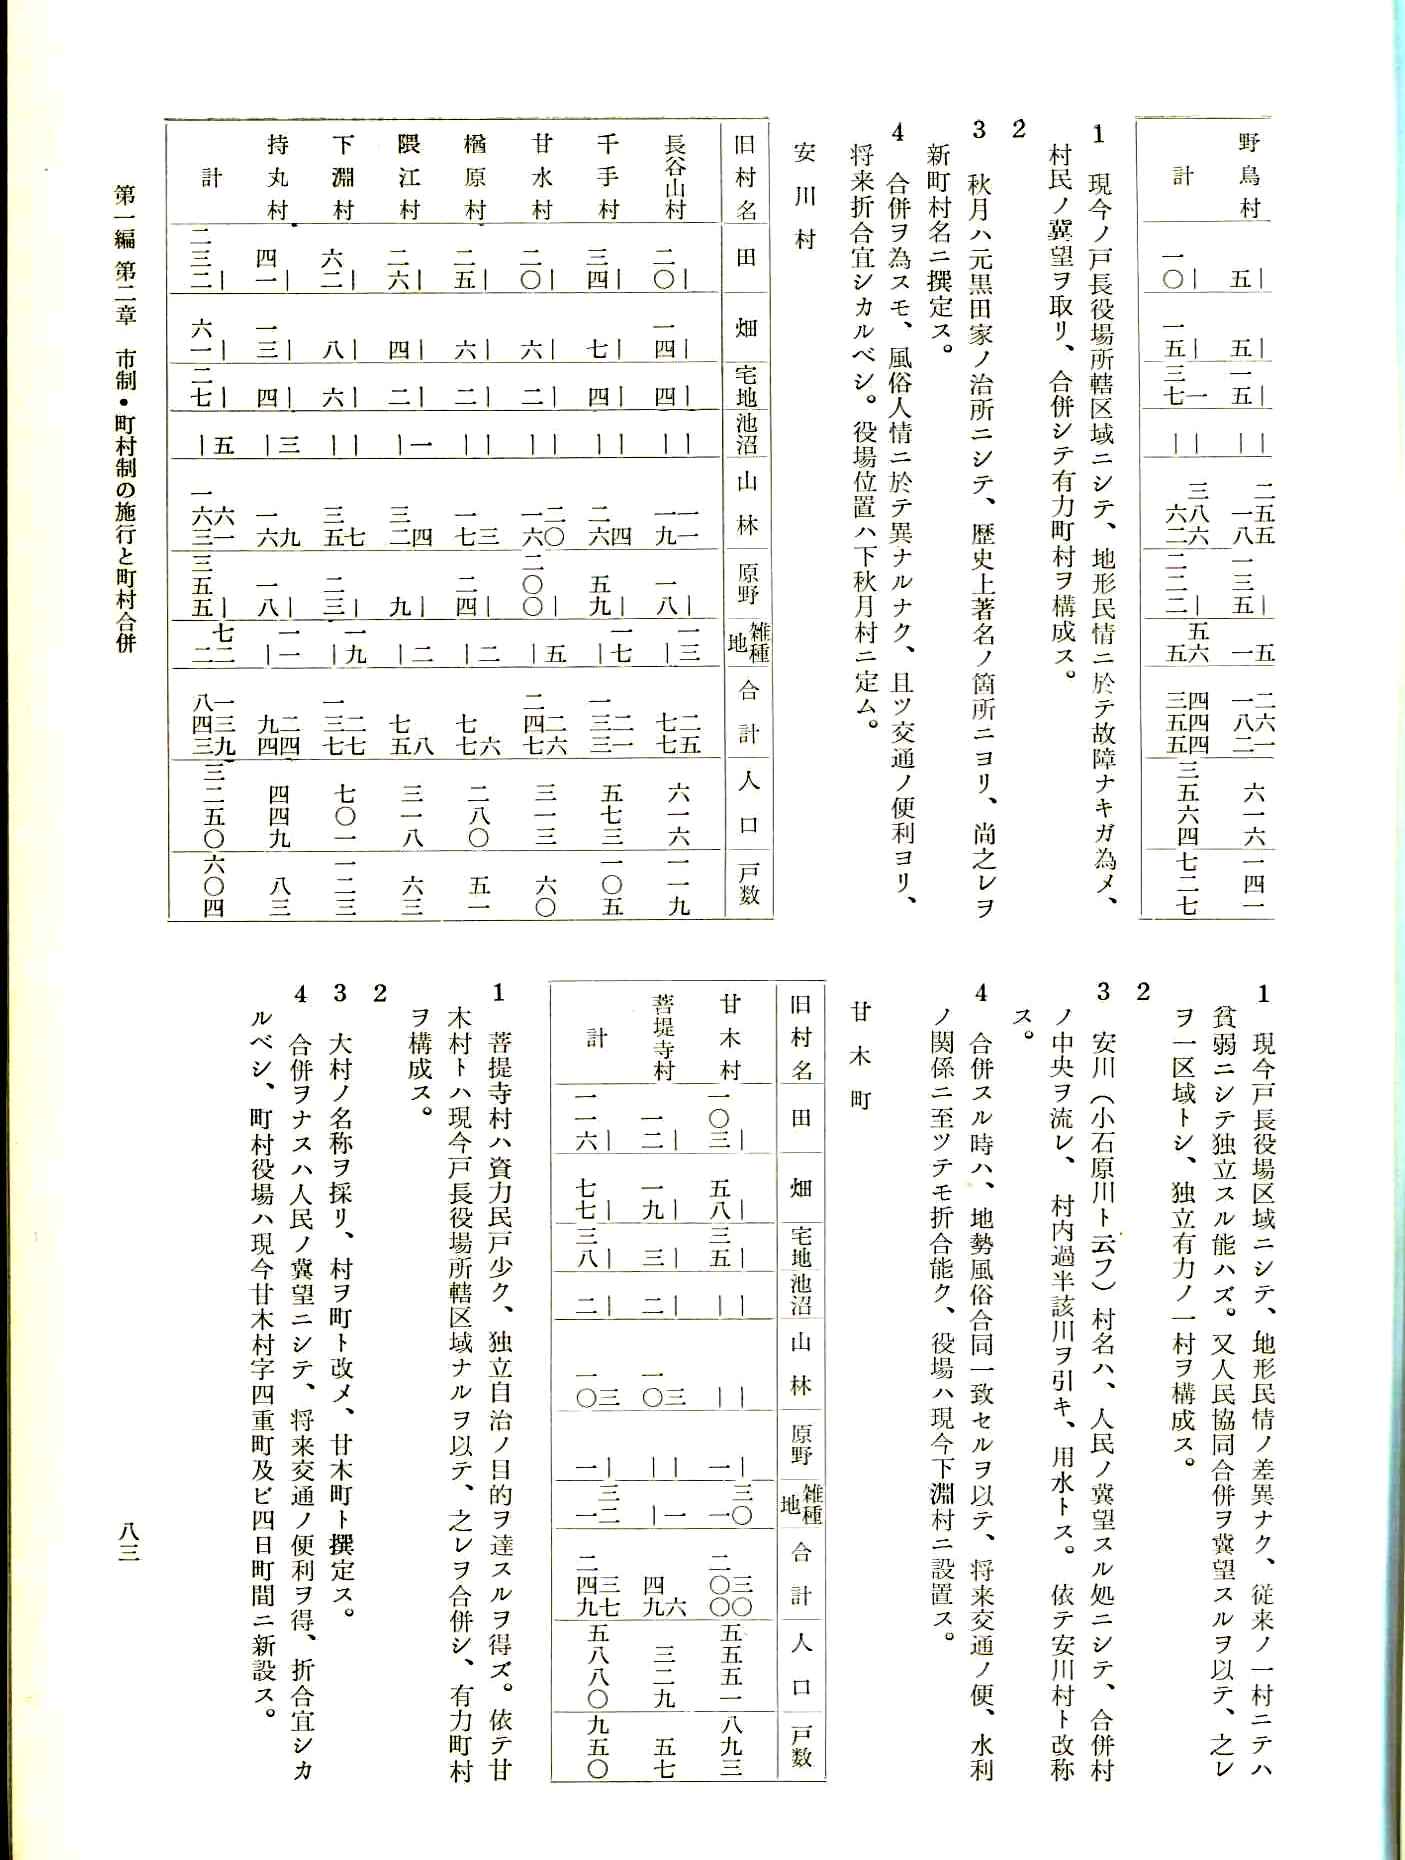 野鳥村 ｜ 五 ｜ 五 ｜ 一五 ｜ ｜ 二五五 一八 ｜ 一三五 五 一 二六一 一八二 六一六 一四一
計 ｜ 一〇 ｜ 一五 一 三七 ｜ ｜ 三八六 六二 ｜ 二二二 五六 五 四四四 三五五 三五六四 七二七
1 現今ノ戸長役場所轄区域ニシテ、地形民情ニ於テ故障ナキガ為メ、
村民ノ冀望ヲ取リ、合併シテ有力町村ヲ構成ス。
2
3 秋月ハ元黒田家ノ治所ニシテ、歴史上著名ノ箇所ニヨリ、尚之レヲ
新町村名ニ撰定ス。
4 合併ヲ為スモ、風俗人情ニ於テ異ナルナク、且ツ交通ノ便利ヨリ、
将来折合宜シカルベシ。役場位置ハ下秋月村ニ定ム。
安川村
旧村名 田 畑 宅地 池沼 山林 原野 雑種地 合計 人口 戸数
長谷山村 ｜ 二〇 ｜ 一四 ｜ 四 ｜ ｜ 一一 一九 ｜ 一八 一三 ｜ 二五 七七 六一六 一一九
千手村 ｜ 三四 ｜ 七 ｜ 四 ｜ ｜ 四 二六 ｜ 五九 一七 ｜ 二一 一三三 五七三 一〇五
甘水村 ｜ 二〇 ｜ 六 ｜ 二 ｜ ｜ 二〇 一六 ｜ 二〇〇 五 ｜ 二六 二四七 三一三 六〇
楢原村 ｜ 二五 ｜ 六 ｜ 二 ｜ ｜ 三 一七 ｜ 二四 二 ｜ 六 七七 二八〇 五一
隈江村 ｜ 二六 ｜ 四 ｜ 二 一 ｜ 四 三二 ｜ 九 二 ｜ 八 七五 三一八 六三
下淵村 ｜ 六二 ｜ 八 ｜ 六 ｜ ｜ 七 三五 ｜ 二三 一九 ｜ 二七 一三七 七〇一 一二三
持丸村 ｜ 四一 ｜ 一三 ｜ 四 三 ｜ 九 一六 ｜ 一八 一一 ｜ 二四 九四 四四九 八三
計 ｜ 二三二 ｜ 六一 ｜ 二七 五 ｜ 六一 一六三 ｜ 三五五 七二 二 一三九 八四三 三二五〇 六〇四
1 現今戸長役場区域ニシテ、地形民情ノ差異ナク、従来ノ一村ニテハ
貧弱ニシテ独立スル能ハズ。又人民協同合併ヲ冀望スルヲ以テ、之レ
ヲ一区域トシ、独立有力ノ一村ヲ構成ス。
2
3 安川（小石原川ト云フ）村名ハ、人民ノ冀望スル処ニシテ、合併村
ノ中央ヲ流レ、村内過半該川ヲ引キ、用水トス。依テ安川村ト改称
ス。
4 合併スル時ハ、地勢風俗合同一致セルヲ以テ、将来交通ノ便、水利
ノ関係ニ至ツテモ折合能ク、役場ハ現今下淵村ニ設置ス。
甘木町
旧村名 田 畑 宅地 池沼 山林 原野 雑種地 合計 人口 戸数
甘木村 ｜ 一〇三 ｜ 五八 ｜ 三五 ｜ ｜ ｜ ｜ ｜ 一 三〇 一 三〇 二〇〇 五五五一 八九三
菩堤寺村 ｜ 一二 ｜ 一九 ｜ 三 ｜ 二 三 一〇 ｜ ｜ 一 ｜ 六 四九 三二九 五七
計 ｜ 一一六 ｜ 七七 ｜ 三八 ｜ 二 三 一〇 ｜ 一 三二 一 三七 二四九 五八八〇 九五〇
1 菩提寺村ハ資力民戸少ク、独立自治ノ目的ヲ達スルヲ得ズ。依テ甘
木村トハ現今戸長役場所轄区域ナルヲ以テ、之レヲ合併シ、有力町村
ヲ構成ス。
2
3 大村ノ名称ヲ採リ、村ヲ町ト改メ、甘木町ト撰定ス。
4 合併ヲナスハ人民ノ冀望ニシテ、将来交通ノ便利ヲ得、折合宜シカ
ルベシ、町村役場ハ現今甘木村字四重町及ビ四日町間ニ新設ス。
第一編 第二章 市制・町村制の施行と町村合併
八三